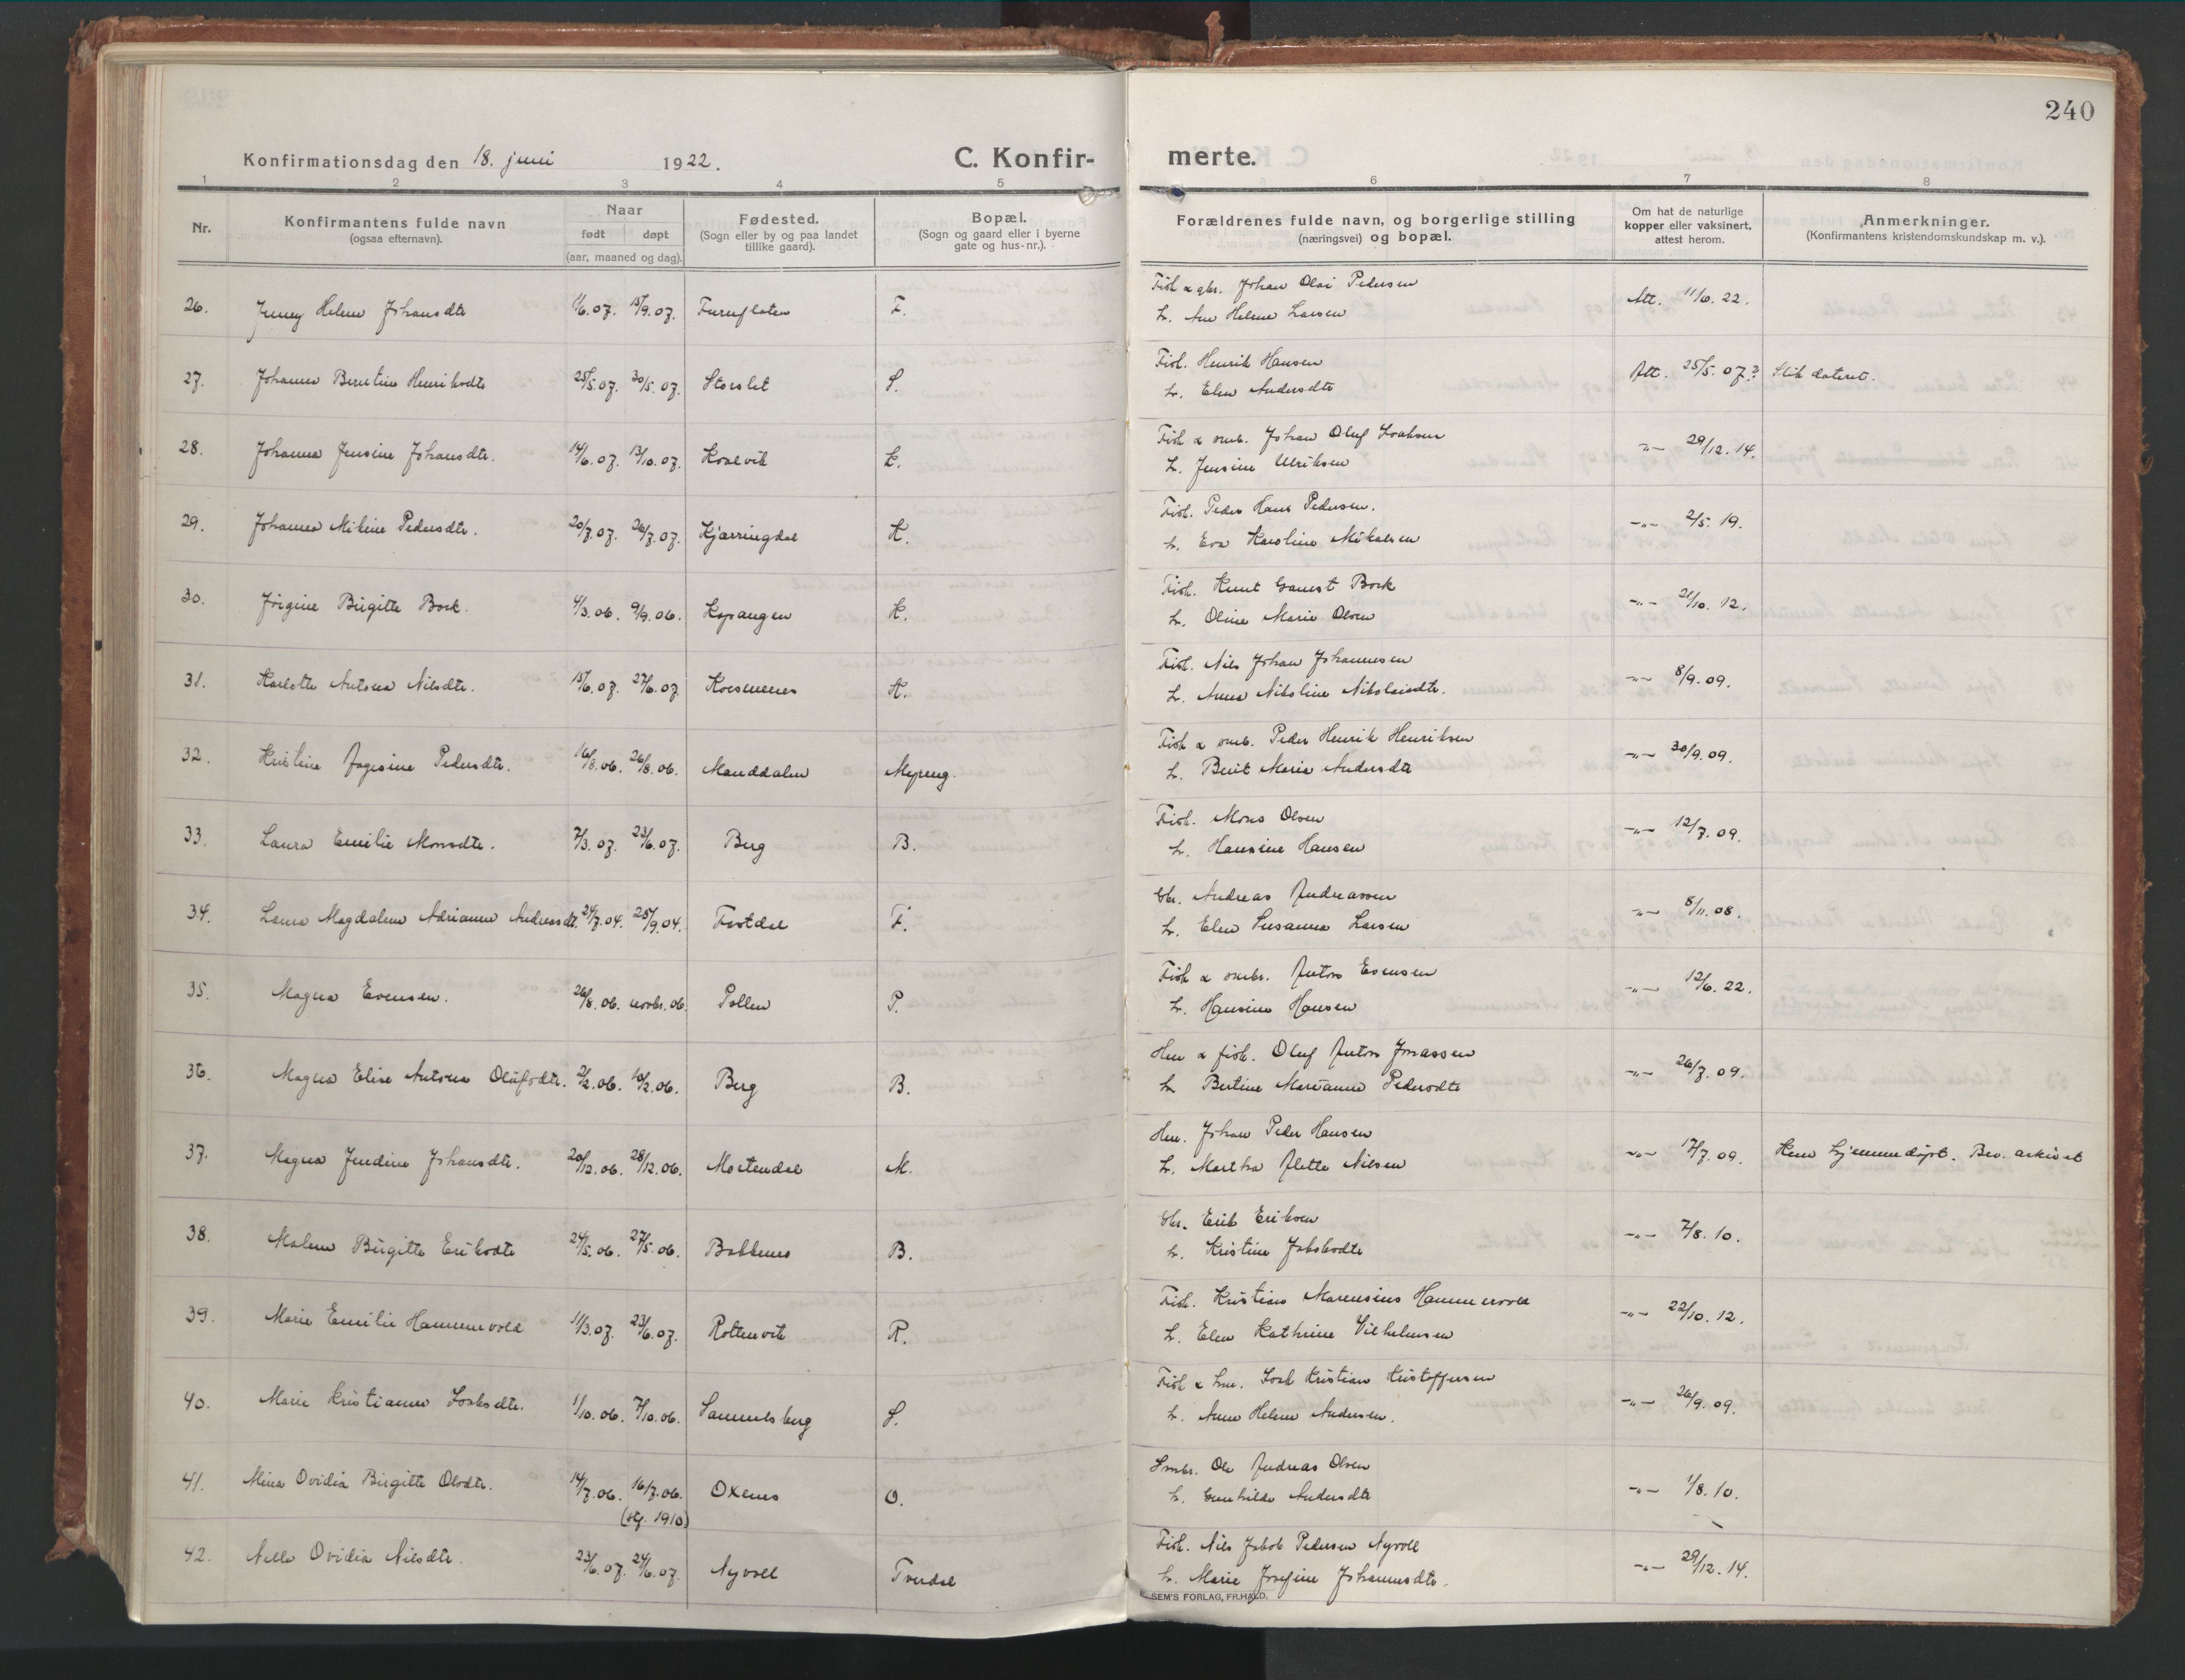 240
Konfirmationsdag den 18. juni 1922.
C. Konfir-
merte.
1 2 3 4 5 6 7 8
Nr.
Konfirmantens fulde navn
(ogsaa efternavn).
Naar
født døpt
(aar, maaned og dag).
Fødested.
(Sogn eller by og paa landet
tillike gaard).
Bopæl.
(Sogn og gaard eller i byerne
gate og hus-nr.).
Forældrenes fulde navn, og borgerlige stilling
(næringsvei) og bopæl.
Om hat de naturlige
kopper eller vaksinert,
attest herom.
Anmerkninger.
(Konfirmantens kristendomskundskap m. v.).
Fisk & gbr. Johan Olai Pedersen
26. Jenny Helene Johansdtr 1/6.07. 15/9.07. Furuflaten F. Att. 11/6. 22.
h. Ane Helene Larsen
Fisk. Henrik Hansen
27. Johanna Berntine Henriksdtr 25/5.07. 30/5.07. Storslet S. Att. 25/5.07? Slik dateret.
h. Elen Andersdtr
Fisk & smb. Johan Oluf Isaksen
28. Johanna Jensine Johansdtr. 14/6.07. 13/10.07. Koalvik K. -"- 29/12.14.
h. Jensine Ulriksen
Fisk. Peder Hans Pedersen.
29. Johanna Miline Pedersdtr. 20/7.07. 26/7.07. Kjærringdal K. -"- 2/5.19.
h. Eva Karoline Mikalsen
Fisk. Knut Garest Bock
30. Jørgine Birgitte Bock. 4/3.06. 9/9.06. Kopangen K. -"- 21/10.12.
h. Oline Marie Olsen
Fisk. Nils Johan Johannesen
31. Karlotte Antona Nilsdtr. 15/6.07. 27/6.07. Koesnenes K. -"- 8/9.09.
h. Anna Nikoline Nikolaisdtr.
Fisk & smb. Peder Henrik Henriksen
32. Kristine Jagesine Pedersdtr. 16/8.06. 26/8.06. Manddalen Myreng. -"- 30/9.09.
h. Berit Marie Andersdtr
Fisk. Mons Olsen
33. Laura Emilie Monsdtr. 7/3.07. 23/6.07. Berg B. -"- 12/7.09.
h. Hansine Hansen
Gbr. Andreas Andreassen
34. Laura Magdalene Adrianne Andreasdtr. 24/7.04. 25/9.04. Fastdal F. -"- 8/11.08.
h. Elen Susanna Larsen
Fisk & smbr. Anton Evensen
35. Magna Evensen. 26/8.06. novbr.06. Pollen P. -"- 12/6.22.
h. Hansine Hansen
Hm & fisk. Oluf Anton Jonassen
36. Magna Elise Antona Olufsdtr. 2/2.06. 10/2.06. Berg B. -"- 26/7.09.
h Bertine Marianne Pedersdtr
Hm. Johan Peder Hansen
37. Magna Jendine Johansdtr. 20/12.06. 28/12.06. Mortendal M. -"- 17/7.09. Kun hjemmedøpt. Bev. arkivet
h. Martha Aletta Nilsen
Gbr. Erik Eriksen
38. Malene Birgitte Eriksdtr 24/5.06. 27/5.06. Bakkenes B. -"- 7/8.10.
h. Kristine Jakobsdtr
Fisk. Kristian Marensius Hammervold
39. Marie Emilie Hammervold 11/3.07. 23/6.07. Rottenvik R. -"- 22/10.12.
h. Elen Kathrine Vilhelmsen
Fisk & hm. Isak Kristian Kristoffersen
40. Marie Kristianne Isaksdtr. 1/10.06. 7/10.06. Samuelsberg S. -"- 26/9.09.
h. Anne Helene Andersen.
Smbr. Ole Andreas Olsen
41. Mina Ovidia Birgitte Olsdtr. 14/7.06. 16/7.06. Oxenes O. -"- 1/8.10.
(stf. 1910)
h. Gunhilde Andersdtr
Fisk. Nils Jakob Pedersen Nyvoll
42. Nella Ovidia Nilsdtr. 23/6.07. 24/6.07. Nyvoll Tverdal -"- 29/12.14.
h. Marie Josefine Johannesdtr.
SEM'S FORLAG, FR.HALD.